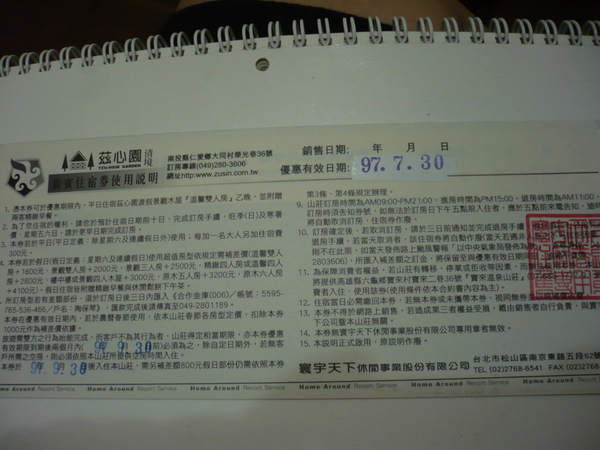 茲心園 清境
TZU-HSIN GARDEN
貴賓住宿券使用說明
南投縣仁愛鄉大同村榮光巷36號
訂房專線(049)280-3606
網址http:www.zusin.com.tw
銷售日期: 年 月 日
優惠有效日期: 97.7.30
1. 憑本券可於優惠期限內,平日住宿茲心園渡假景觀木屋『溫馨雙人房』乙晚,並附贈
兩客精緻早餐。
2. 為了您住宿的權利,請您於預計住宿日期前十日,完成訂房手續,旺季(日)及寒暑
假、星期五六日,請於更早日期完成訂房。
3. 本券若於平日(平日定義:除星期六及連續假日外)使用;每加一名大人另加住宿費
300元。
4. 本券若於假日(假日定義:星期六及連續假日)使用超值房型依規定需補差價(溫馨雙
人房+1800元,景觀雙人房+2000元,景觀三人房+2500元,精緻四人房或溫馨四人
房+2800元,樓中樓或景觀四人木屋+3000元,原木五人房+3200元,原木六人房
+4100元)/假日住宿皆附贈精緻早餐與休閒鬆餅下午茶。
765-536-466/戶名:陶保琴》,匯款完成後請傳真至049-2801189。
本券在優惠有效日期內,若於農曆春節使用,依本山莊春節各房型定價,扣除本券
1000元作為補差價依據。
97.9.30
97.9.30
第3條、第4條規定辦理。
9. 山莊訂房時間為AM09:00-PM21:00,進房時間為PM15:00,退房時間為AM11:00,
將自動取消訂房,住宿券作廢。
10. 訂房確定後,若欲取消訂房,請於三日前通知並完成退房手續
2803606),所匯入補差額之訂金,將保留至與優惠有效日期
11. 為保障消費者權益,若山莊有轉移、停業或拒收等因素,
將提供高雄縣六龜鄉寶來村寶來三巷36號『寶來溫泉山莊』
費者入住,使用該券(使用條件依本合約書內容為主)。
12. 住宿當日必需繳回本券,若無本券或未攜帶本券,視同無券
13. 本券不得於網路上銷售,若造成第三者權益受損,概由銷售者自行負責,與寰
下公司暨本山莊無關。
14. 本券無寰宇天下休閒事業股份有限公司專用章者無效。
15. 本說明正式啟用,原說明作廢。
寰宇天下休閒事業股份有限公司
台北市松山區南京東路五段62
TEL (02)2768-6541 FAX (02)2768
Home Around Resort Service Home Around Resort Service Home Around Resort Service Home Around Resort Service Home Around Resort Service